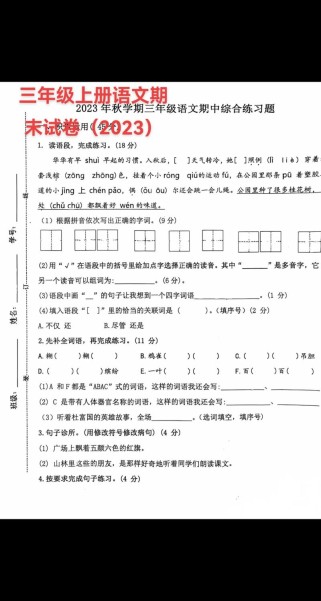 三年级上册语文期
末试卷（2023）
2023年秋学期三年级语文期中综合练习题
1. 读语段，完成练习。(18分)
华华有早起的习惯。入秋后，[ ]天气转冷，她[ ]照例 (lì liè) 穿着
套浅棕 (zōng zhōng) 色，挂着个小 róng qiú的运动 fú，在公园里那条 pū 着塑胶
道的小 jìng 上 chén pǎo，偶 (ǒu ǒu) 尔还会跳一会儿绳。公园里种了很多桂花树，
处 (chǔ chù) 都飘着好 wén 的味道。
(1) 根据拼音依次写出正确的字词。(9分)
(2) 用“√”在语段中的括号里给加点字选择正确的读音。其中“______”是多音字，它
另一个读音可以组词为:__________。(6分)。
(3) 语段中画“__”的句子让我想到一个四字词语__________。(1分)
(4) 填入语段“[ ]”里的恰当的关联词是（ ）。(填序号) (2分)
A. 不仅 还 B. 尽管 还是
2. 先补全词语，再完成练习。(11分)
A. 糊( )糊( ) B. 鸦雀( )( ) C. ( )( )吊胆
D. ( )( )缤纷 E. 一叶( )( ) F. 百( )百( )
(1) A和F都是“ABAC”式的词语，这样的词语我还会写:________、
(2) C 是带有人体器官名称的词语，这样的词语我还会写:________、
(3) 听着杜富国的英雄故事，全场__________。(选词填空，填序号)
3. 句子诊所。(用修改符号修改病句) (4分)
(1) 广场上飘着五颜六色的红旗。
(2) 山林里这些的朋友，是那样好奇地听着同学们朗读课文。
4. 按要求完成句子练习。(4分)
学号:
姓名:
班级: